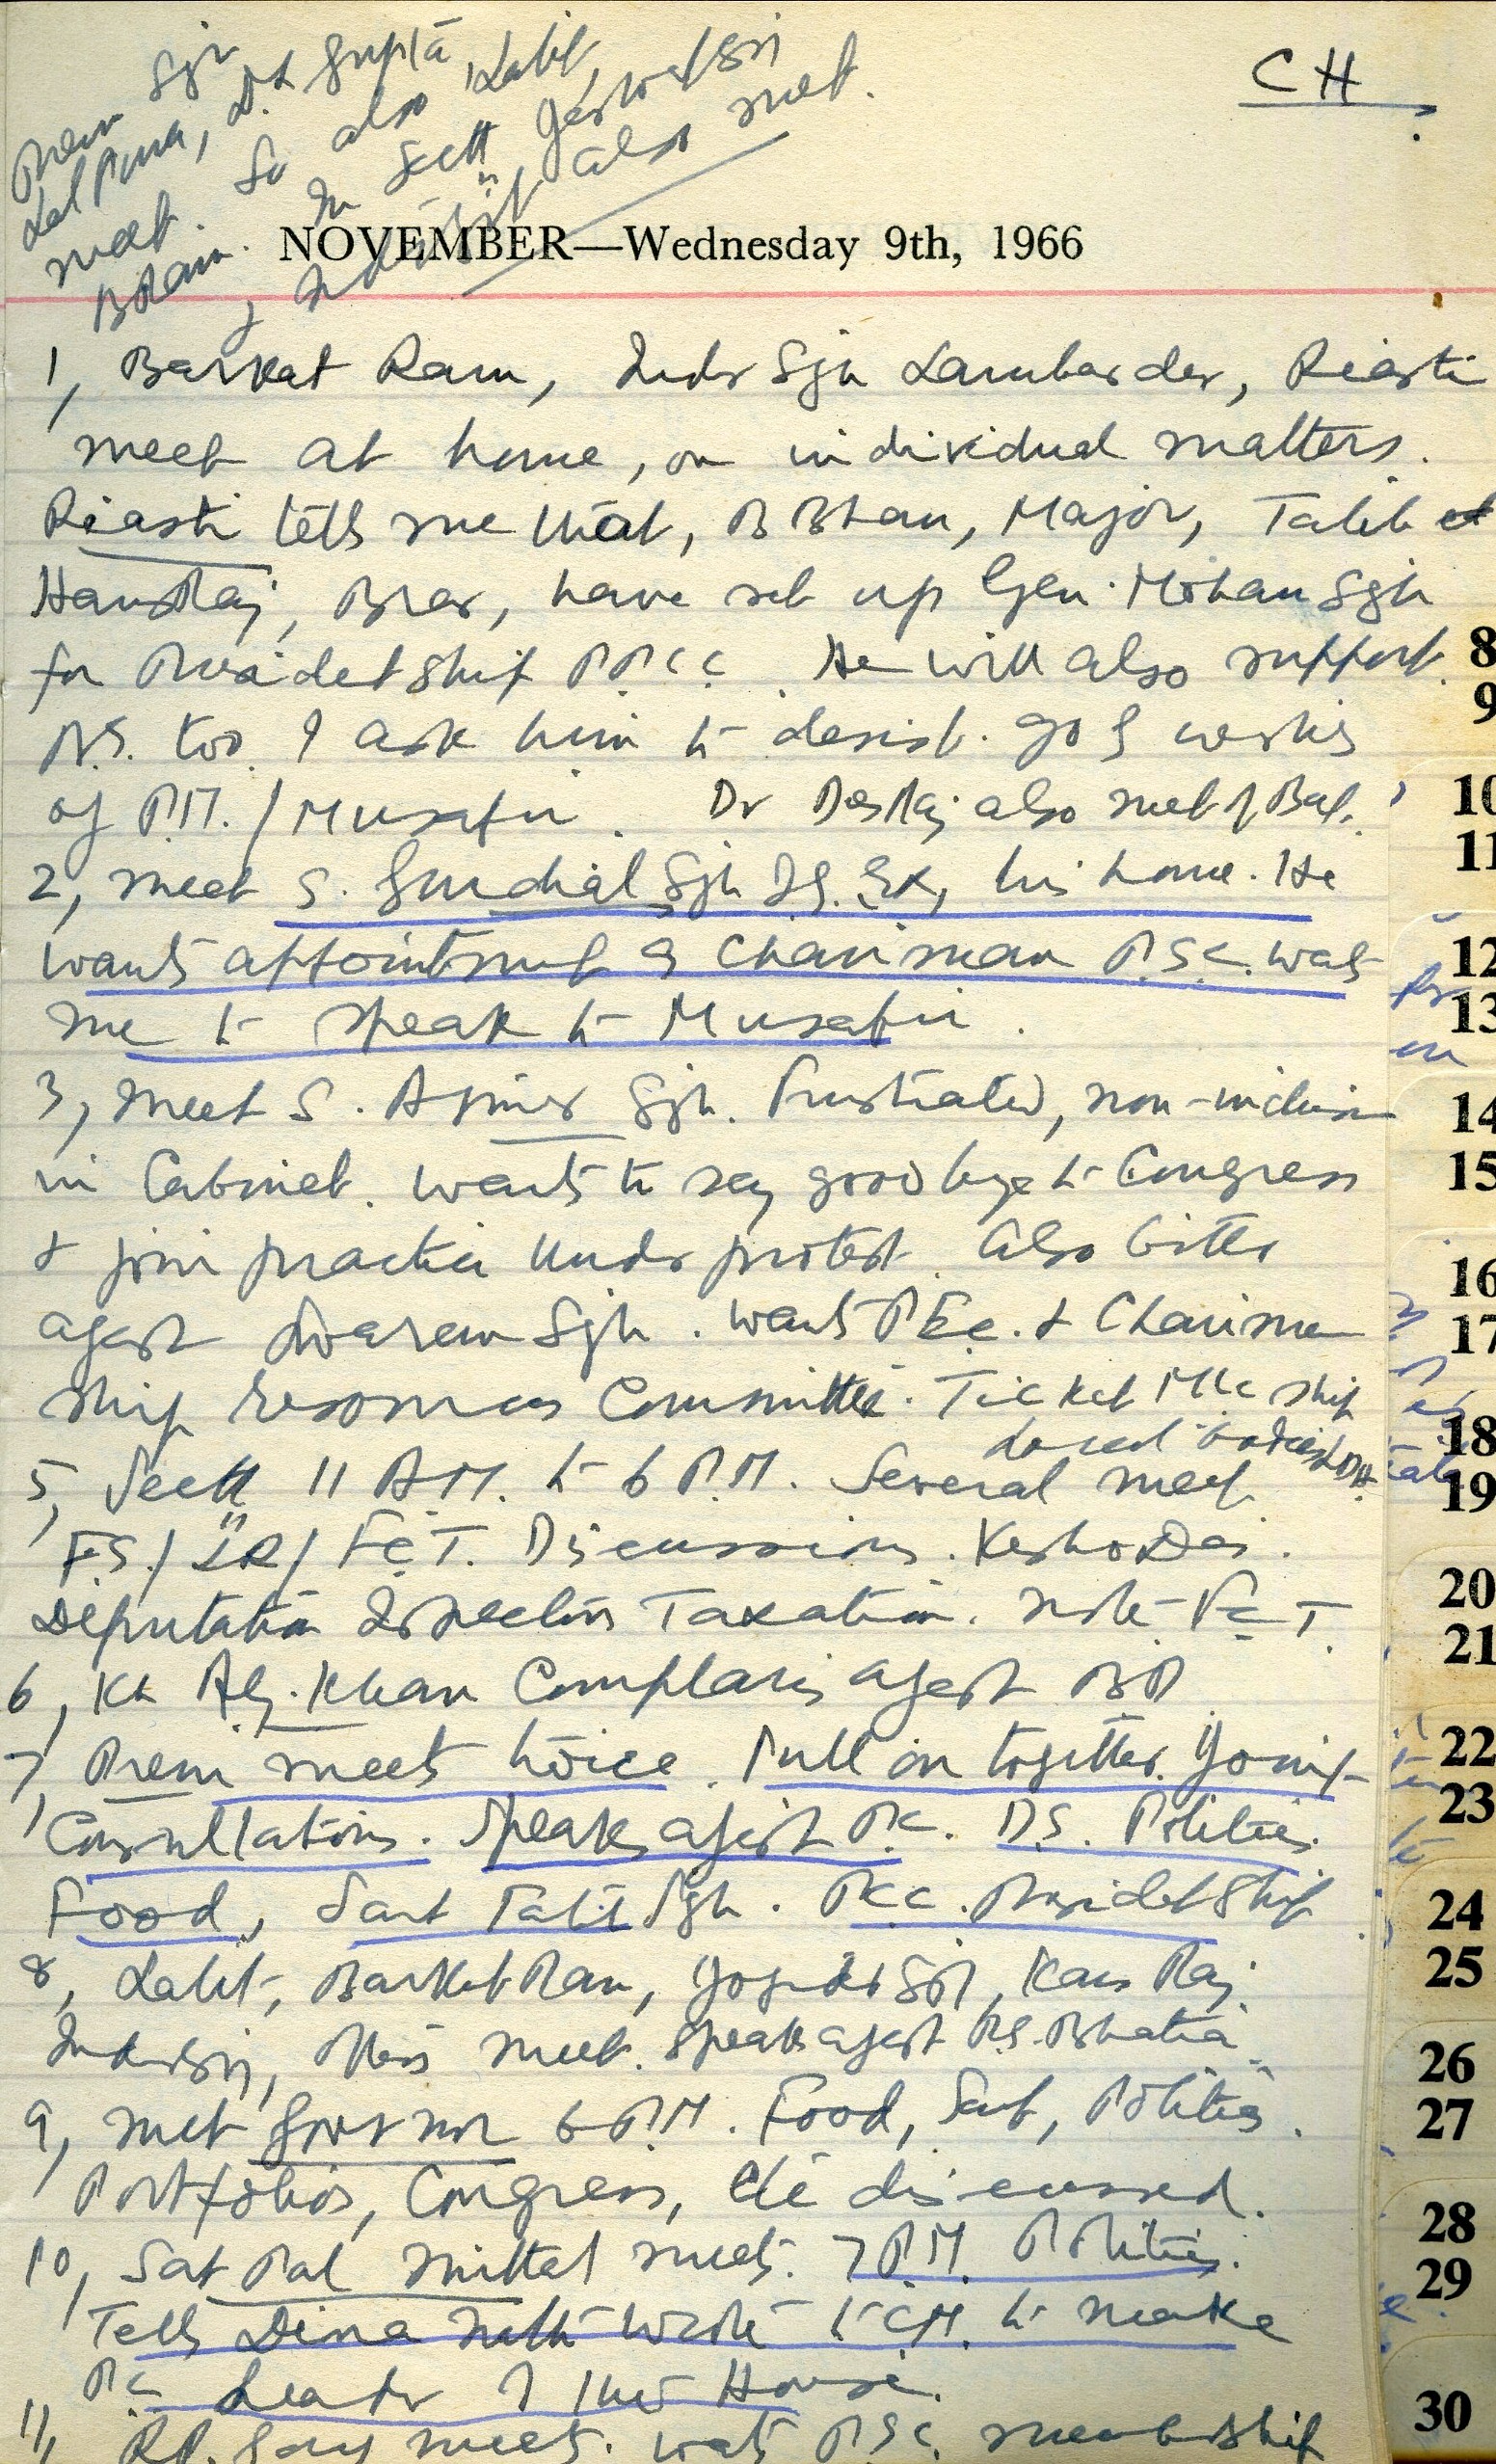 CH
Prem Sgh
Lal Pura, D.D Gupta
met. So also Lalit,
In Sectt
also met.
NOVEMBER—Wednesday 9th, 1966
1, Barkat Ram, Indr Sgh Lambarder, Riasti
meet at home, on individual matters.
Riasti tells me that, B Bhan, Major, Talib &
HansRaj, Brar, have set up Gen. Mohan Sgh
for Presidetship PPCC. He will also support
N.S. too. I ask him to desist.
of P.M. / Musafir. Dr DesRaj also met
2, meet S. Gurdial Sgh I.G. Ex, his home. He
wants appointment as Chairman P.S.C. wats
me to speak to Musafir.
3, meet S. Ajmer Sgh. Frustrated, non-inclusion
in Cabinet. wants to say goodbye to Congress
& join practice under protest. also bitter
agast Swaren Sgh. wants P.E.C. & Chairman
ship resources Committee. Ticket MLC ship
local bodies
5, Sectt 11 A.M. to 6 P.M. Several meet
F.S./ LR/ FCT. Discussions. Kesho Das.
Deputation Inspectors Taxation. note FCT.
6, Kh Ali Khan Complains agast
7, Prem meets twice. Pull on together. Joint
Consultations. Speaks agast P.C. D.S. Politics.
Food, Sant Fateh Sgh. PCC. Presidetship
8, Lalit, Barket Ram, Jogindr Sgh, Hans Raj,
meet. speak agast R.S. Bhatia.
9, met Governor 6 P.M. Food, Sant, Politics.
Portfolios, Congress, etc discussed.
10, Sat Pal Mittal meets. 7 P.M. Politics.
Tells Dina Nath wrote to C.M. to make
PC Leader of the House.
11, meets. wats P.S.C. membership
8
9
10
11
12
13
14
15
16
17
18
19
20
21
22
23
24
25
26
27
28
29
30